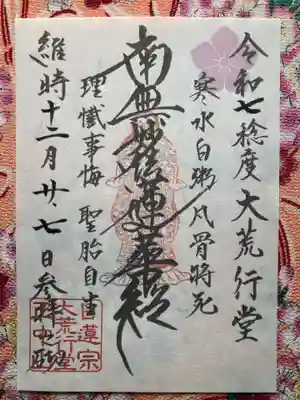 令和七稔度大荒行堂
寒水白粥凡骨将死
南無妙法蓮華経
理懺事悔 聖胎自生
維時十二月廿七日参拝
日蓮宗
大荒行堂